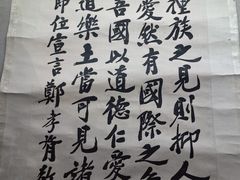 種族之見則抑人
愛然有國際之
吾國以道德仁愛
道樂土當可見諸
即位宣言鄭孝胥